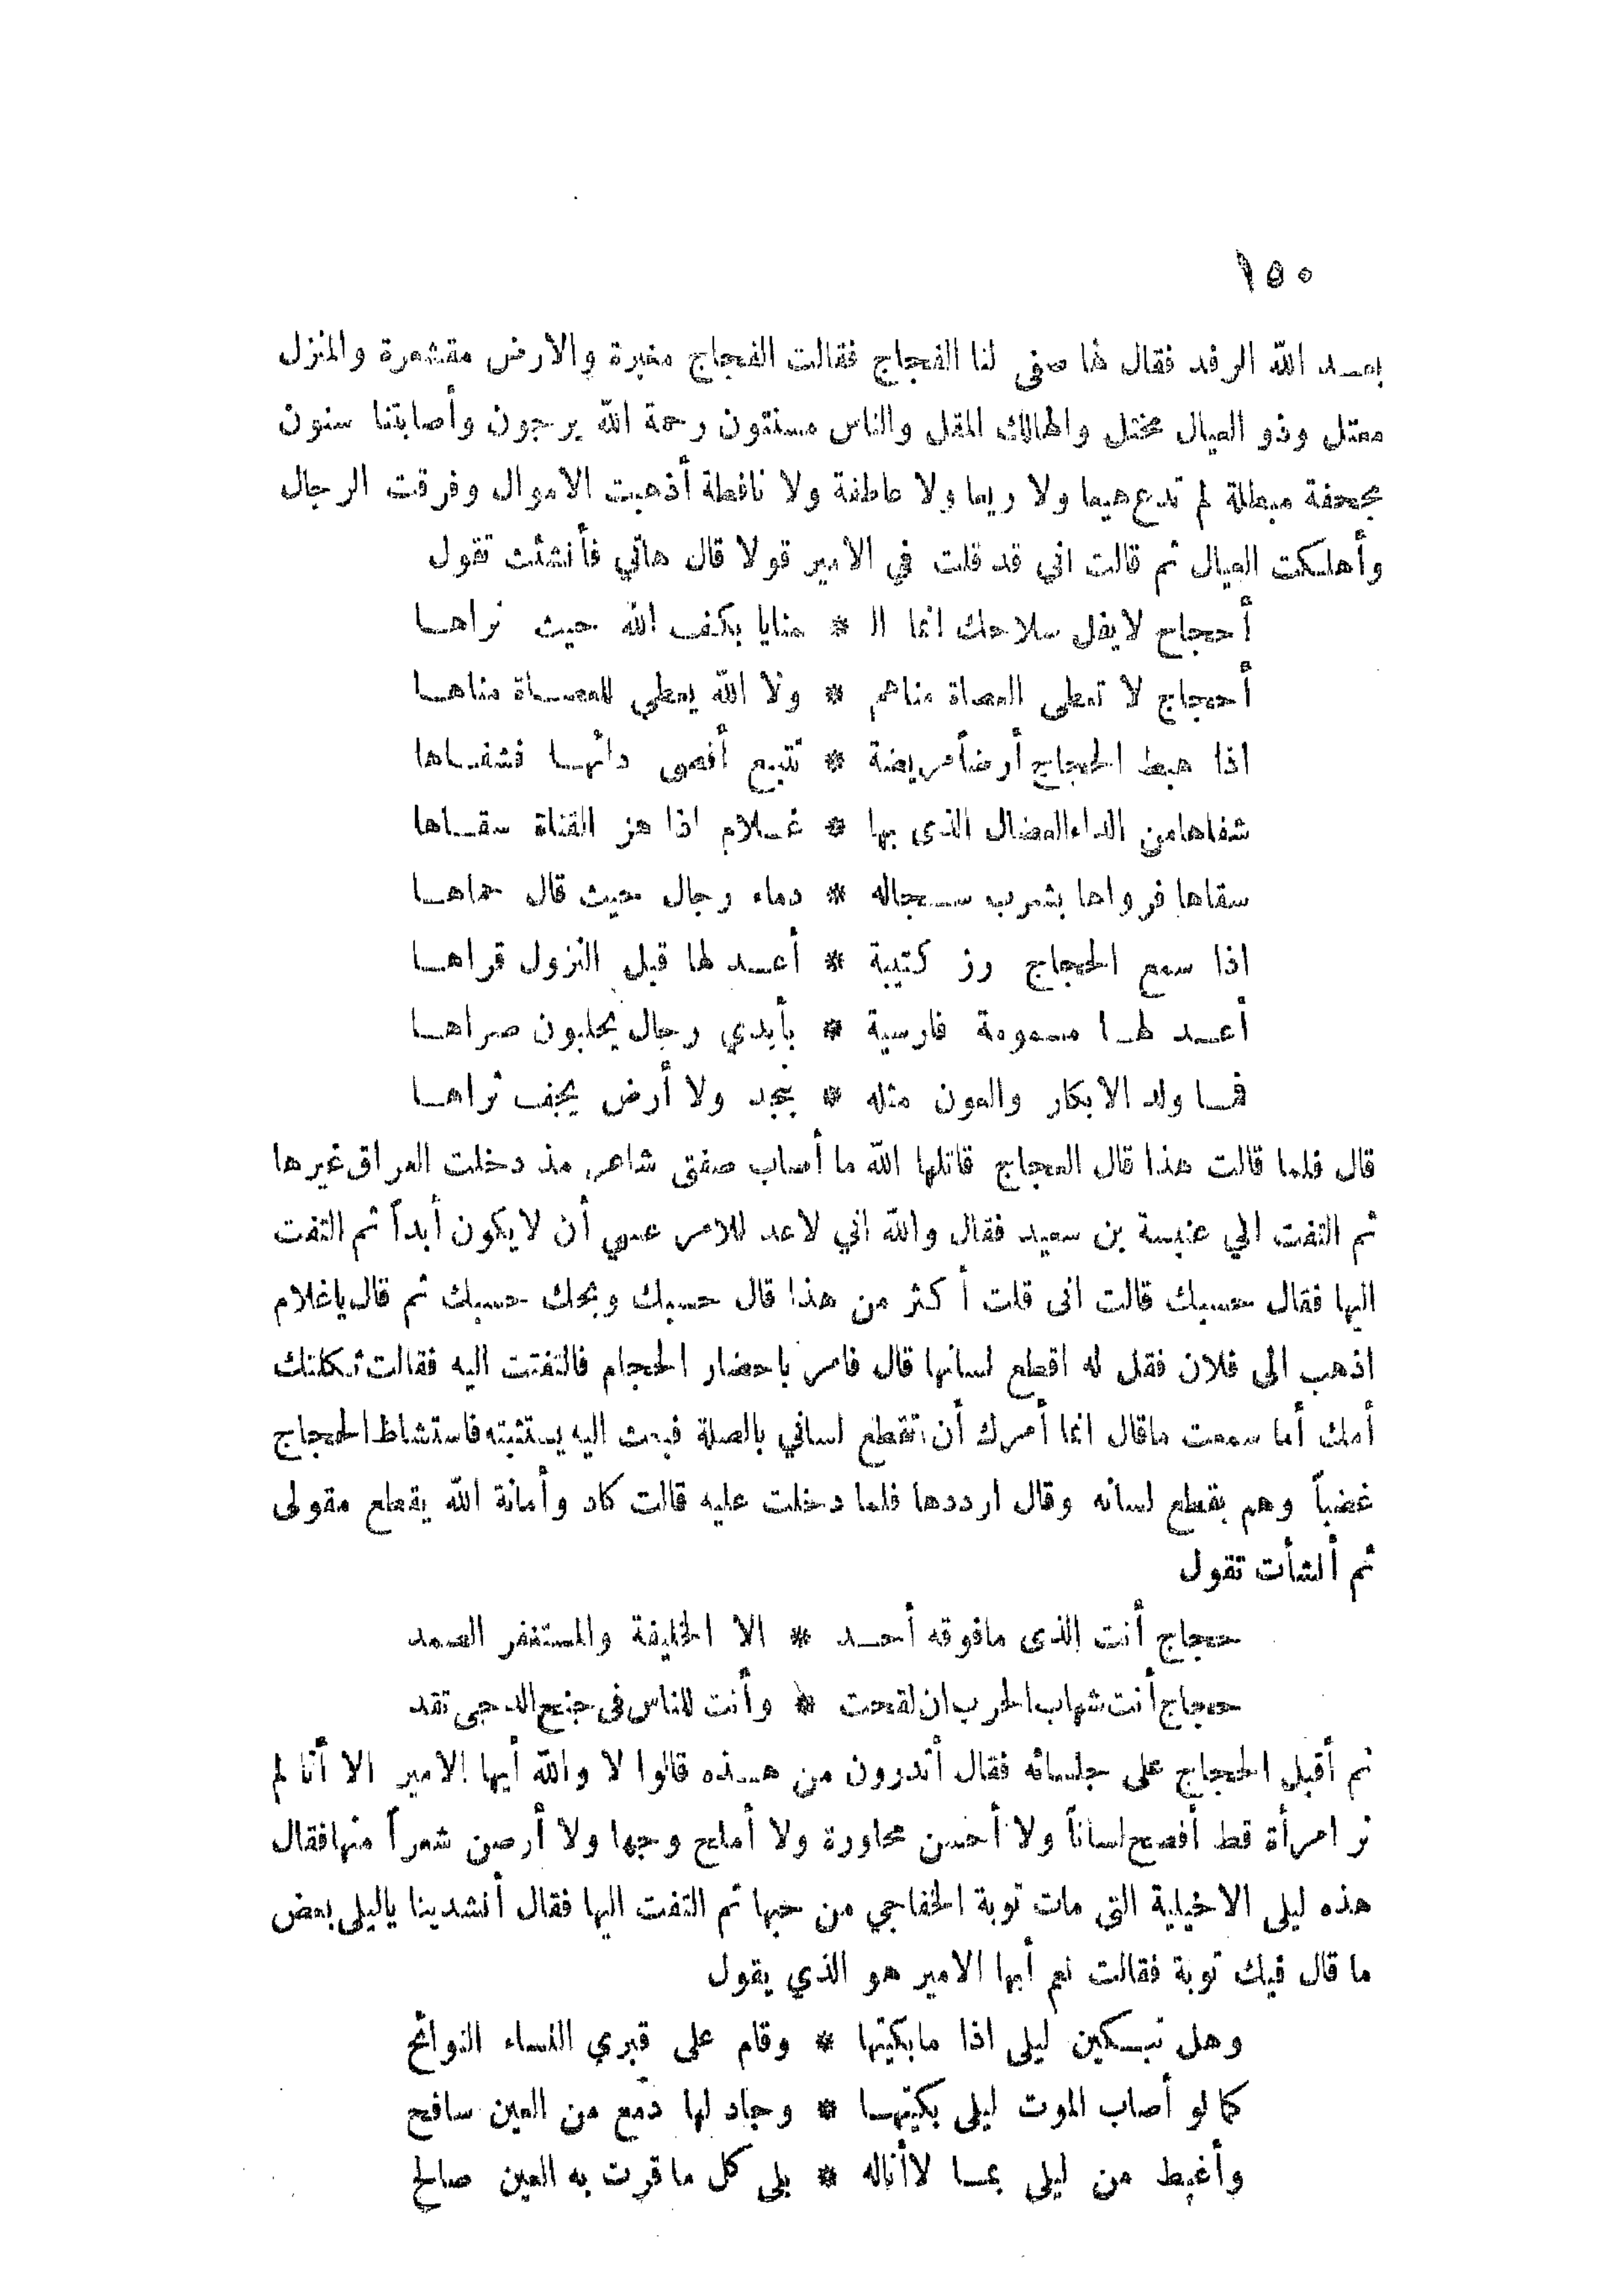 ١٥٠
بعد الله الرفد فقال لها صفى لنا الفجاج فقالت الفجاج مغبرة والارض مقشعرة والمنزل
معتل وذو العيال مختل والهالك المقل والناس مسنتون رحمة الله يرجون وأصابتنا سنون
مجحفة مبطلة لم تدع هبعا ولا ربعا ولا عافطة ولا نافطة أذهبت الاموال وفرقت الرجال
وأهلكت العيال ثم قالت انى قد قلت في الامير قولا قال هاتي فأنشئت تقول
أحجاج لايفل سلاحك انما ال * منايا بكف الله حيث تراها
أحجاج لا تعطى العصاة مناهم * ولا الله يعطى للعصاة مناها
اذا هبط الحجاج أرضاً مريضة * تتبع أقصى دائها فشفاها
شفاها من الداء العضال الذى بها * غلام اذا هز القناة سقاها
سقاها فرواها بشرب سجاله * دماء رجال حيث قال حماها
اذا سمع الحجاج رز كتيبة * أعد لها قبل النزول قراها
أعد لها مسمومة فارسية * بأيدي رجال يحلبون صراها
فما ولد الابكار والعون مثله * بنجد ولا أرض يجف ثراها
قال فلما قالت هذا قال الحجاج قاتلها الله ما أصاب صفتى شاعر مذ دخلت العراق غيرها
ثم التفت الي عنبسة بن سعيد فقال والله اني لاعد للامر عسى أن لايكون أبداً ثم التفت
اليها فقال حسبك قالت انى قلت أكثر من هذا قال حسبك ويحك حسبك ثم قال ياغلام
اذهب الى فلان فقل له اقطع لسانها قال فامر باحضار الحجام فالتفتت اليه فقالت ثكلتك
أمك أما سمعت ماقال انما أمرك أن تقطع لساني بالصلة فبعث اليه يستثبته فاستشاط الحجاج
غضباً وهم بقطع لسانه وقال ارددها فلما دخلت عليه قالت كاد وأمانة الله يقطع مقولى
ثم أنشأت تقول
حجاج أنت الذى مافوقه أحد * الا الخليفة والمستغفر الصمد
حجاج أنت شهاب الحرب ان لقحت * وأنت للناس فى جنح الدجى تقد
ثم أقبل الحجاج على جلسائه فقال أتدرون من هذه قالوا لا والله أيها الامير الا أنا لم
نر امرأة قط أفصح لساناً ولا أحسن محاورة ولا أملح وجها ولا أرصن شعراً منها فقال
هذه ليلى الاخيلية التى مات توبة الخفاجي من حبها ثم التفت اليها فقال أنشدينا ياليلى بعض
ما قال فيك توبة فقالت نعم أيها الامير هو الذي يقول
وهل تبكين ليلى اذا مابكيتها * وقام على قبري النساء النوائح
كما لو أصاب الموت ليلى بكيتها * وجاد لها دمع من العين سافح
وأغبط من ليلى بما لاأناله * بلى كل ماقرت به العين صالح